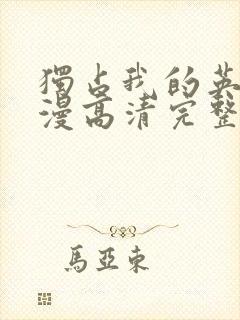 獨占我的英
漫高清完整
馬亞東